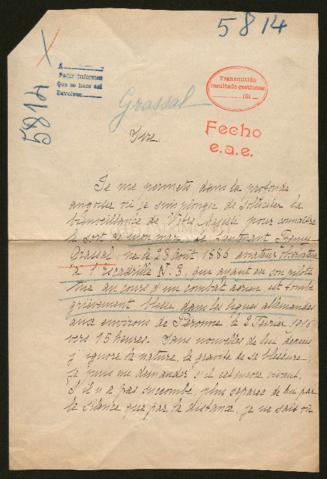 5814
5814
A
Pedir informes
Que se hace así
Devolver
Transmitido
resultado gestiones
191
Grassal
Fecho
e.a.e.
Sire,
Je me permets dans la profonde
angoisse où je suis plongée de solliciter la
bienveillance de Votre Majesté pour connaître
le sort de mon mari, le Lieutenant
Grassal né le 28 Août 1886 observateur
à l'Escadrille N. 3, qui ayant eu son pilote
tué au cours d'un combat aérien est tombé
grièvement blessé dans les lignes allemandes
aux environs de Péronne le 2 Février 1916
vers 15 heures. Sans nouvelles de lui depuis
j'ignore la nature, la gravité de sa blessure
je puis me demander s'il est encore vivant.
S'il n'a pas succombé, plus séparée de lui par
le silence que par la distance, je ne sais où